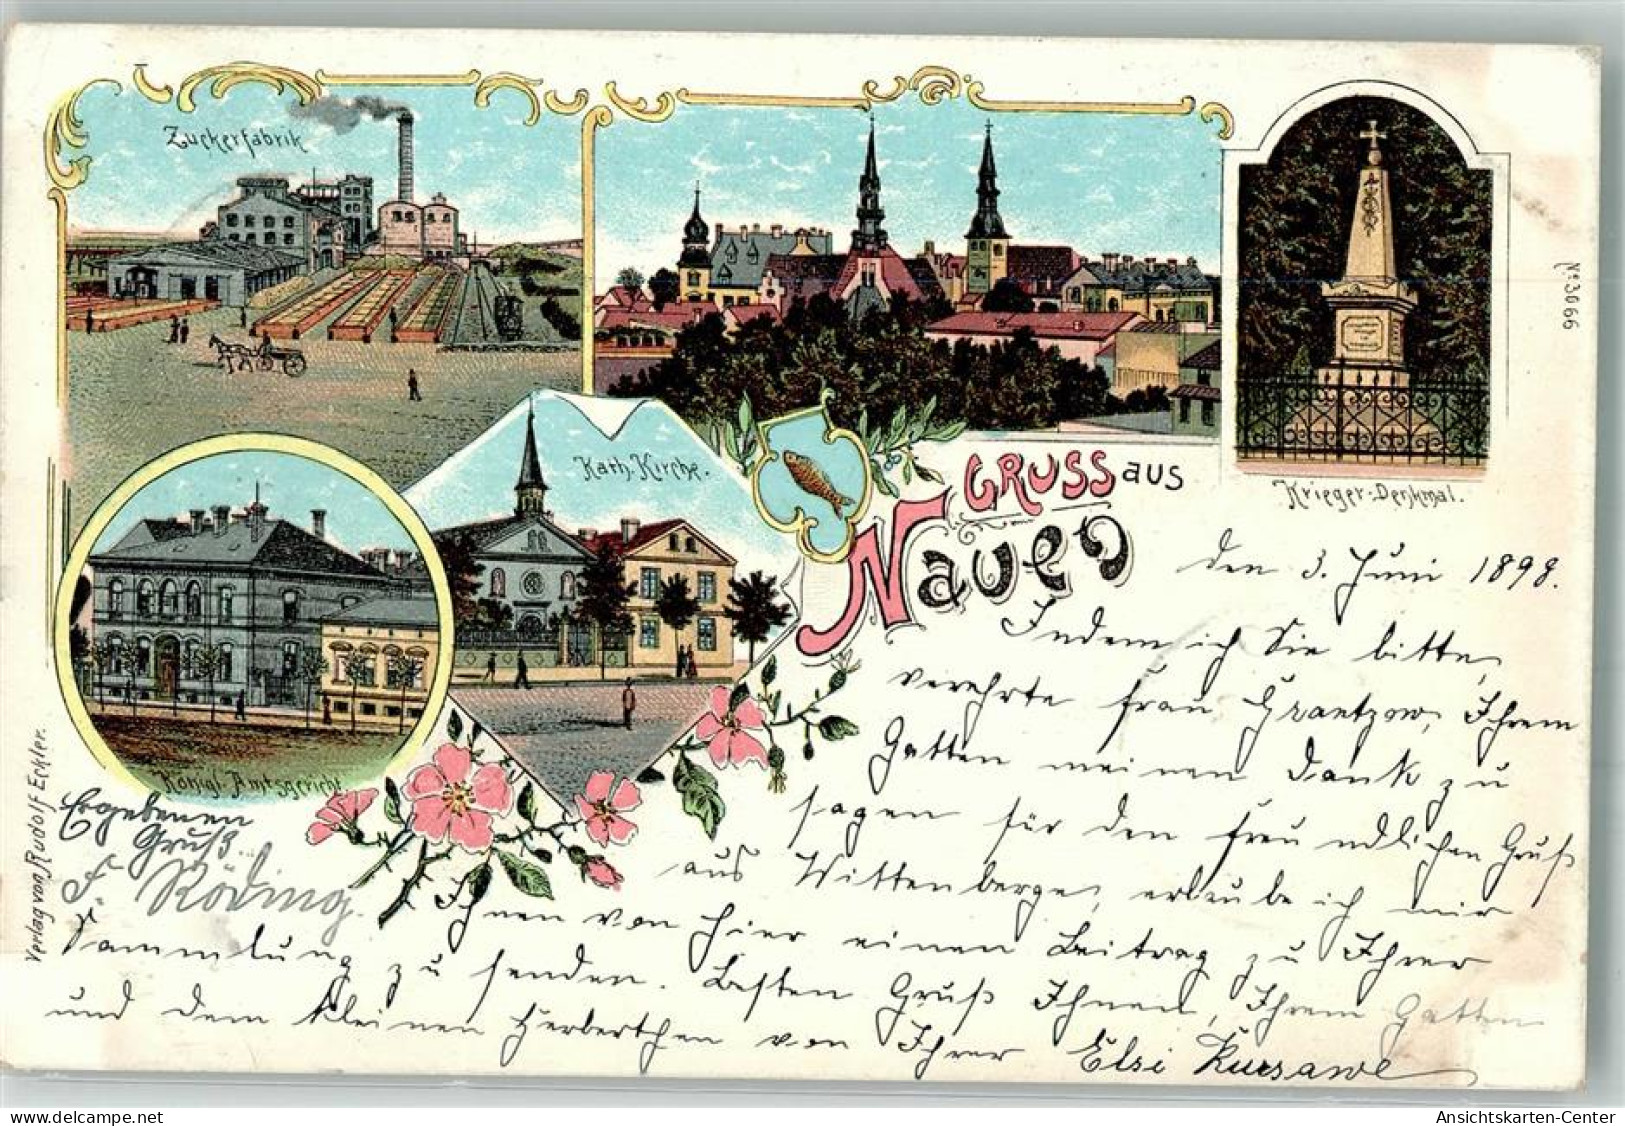 Zuckerfabrik
Kath. Kirche.
GRUSS aus
Nauen
Krieger-Denkmal.
Königl. Amtsgericht
No 3066
Verlag von Rudolf Eckler.
den 3. Juni 1898.
Indem ich Sie bitte,
verehrte Frau Grantzow, Ihrem
Gatten meinen Dank zu
sagen für den freundlichen Gruß
aus Wittenberge, erlaube ich mir
Ihnen von hier einen Beitrag zu Ihrer
Sammlung zu senden. Besten Gruß Ihnen, Ihrem Gatten
und dem kleinen Herberthchen von Ihrer Elsi Kursawe
Ergebenen
Gruß
Röding.
Ansichtskarten-Center